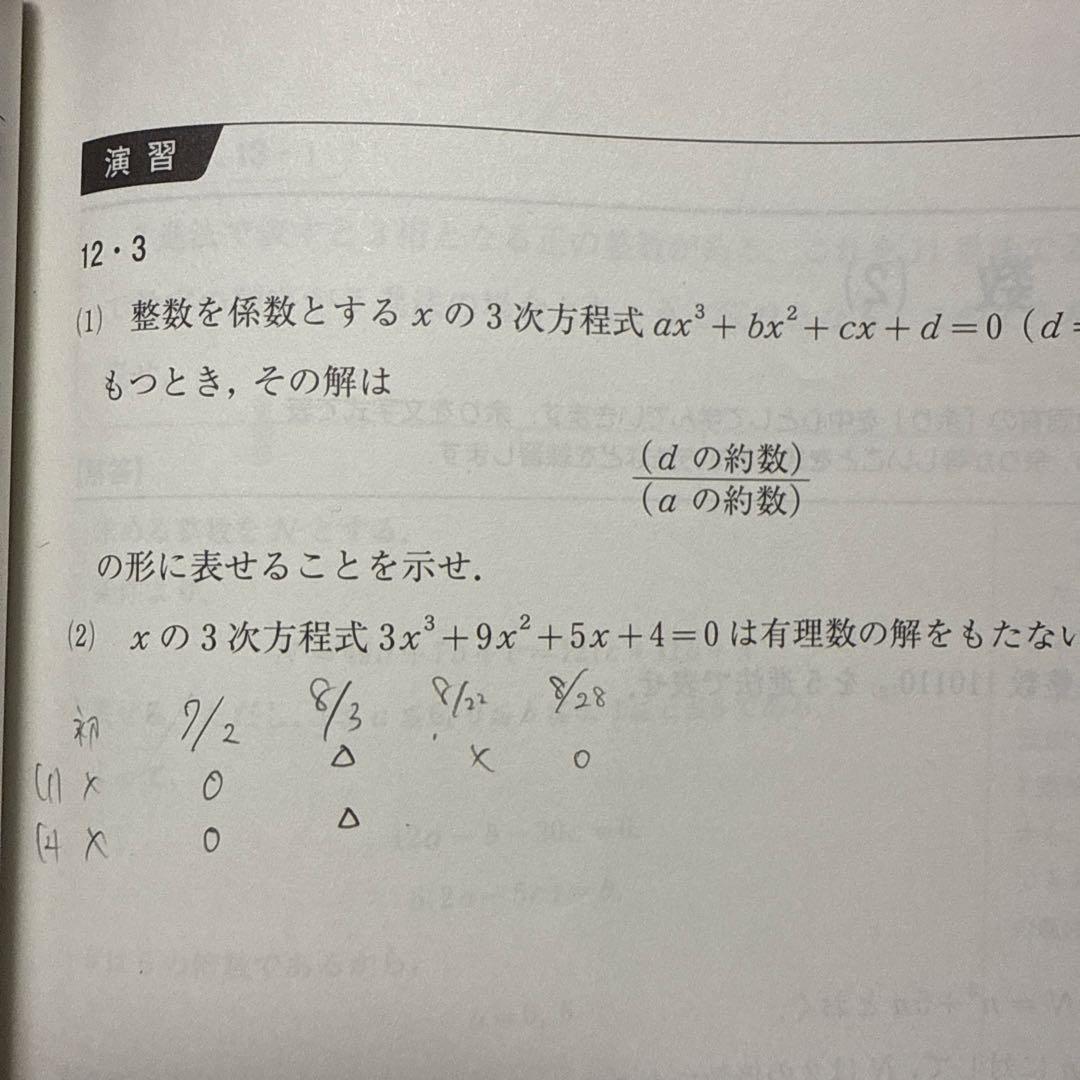 演習
12・3
(1) 整数を係数とする x の 3 次方程式 ax³ + bx² + cx + d = 0 ( d =
もつとき, その解は
(d の約数)
(a の約数)
の形に表せることを示せ.
(2) x の 3 次方程式 3x³ + 9x² + 5x + 4 = 0 は有理数の解をもたない
初 7/2 8/3 8/22 8/28
(1) × 0 △ × 0
(2) × 0 △